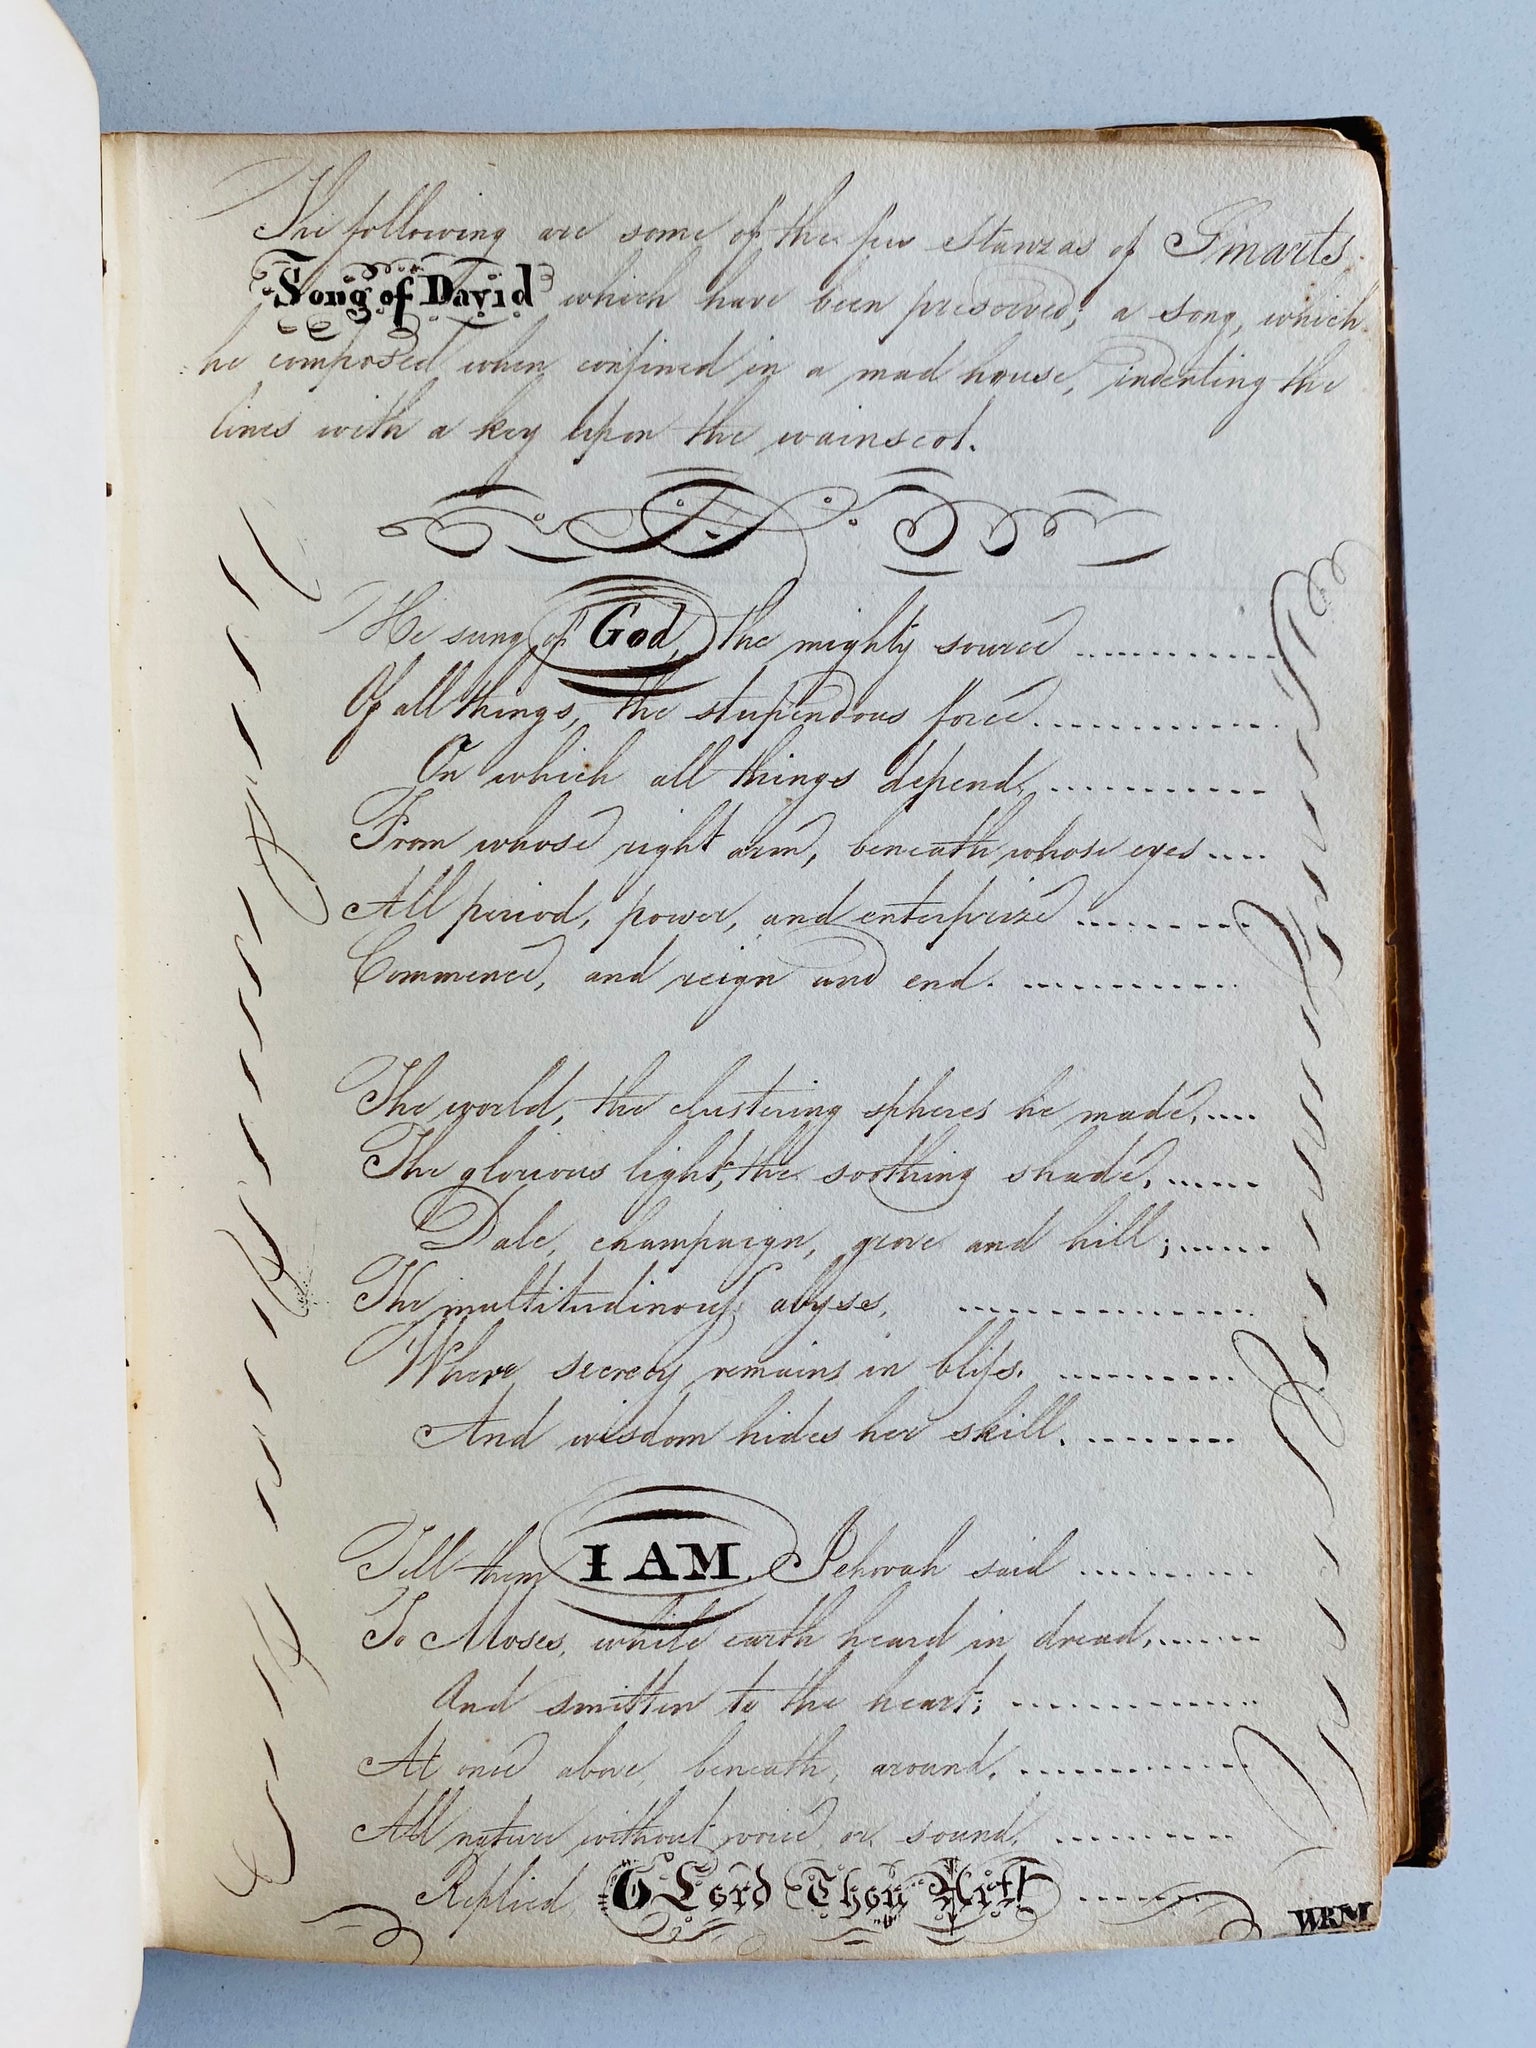 The following are some of the few Stanzas of Smarts
Song of David which have been preserved; a song, which
he composed when confined in a mad house, indenting the
lines with a key upon the wainscot.
He sung of God, the mighty source
Of all things, the stupendous force
On which all things depend,
From whose right arm, beneath whose eyes
All period, power, and enterprize
Commence, and reign and end.
The world, the clustering spheres he made,
The glorious light, the soothing shade,
Dale, champaign, grove and hill;
The multitudinous abyss,
Where secrecy remains in bliss.
And wisdom hides her skill.
Tell them I AM. Jehovah said
To Moses, while earth heard in dread,
And smitten to the heart;
At once above, beneath, around,
All nature without voice or sound,
Replied, O Lord Thou Art
WRM